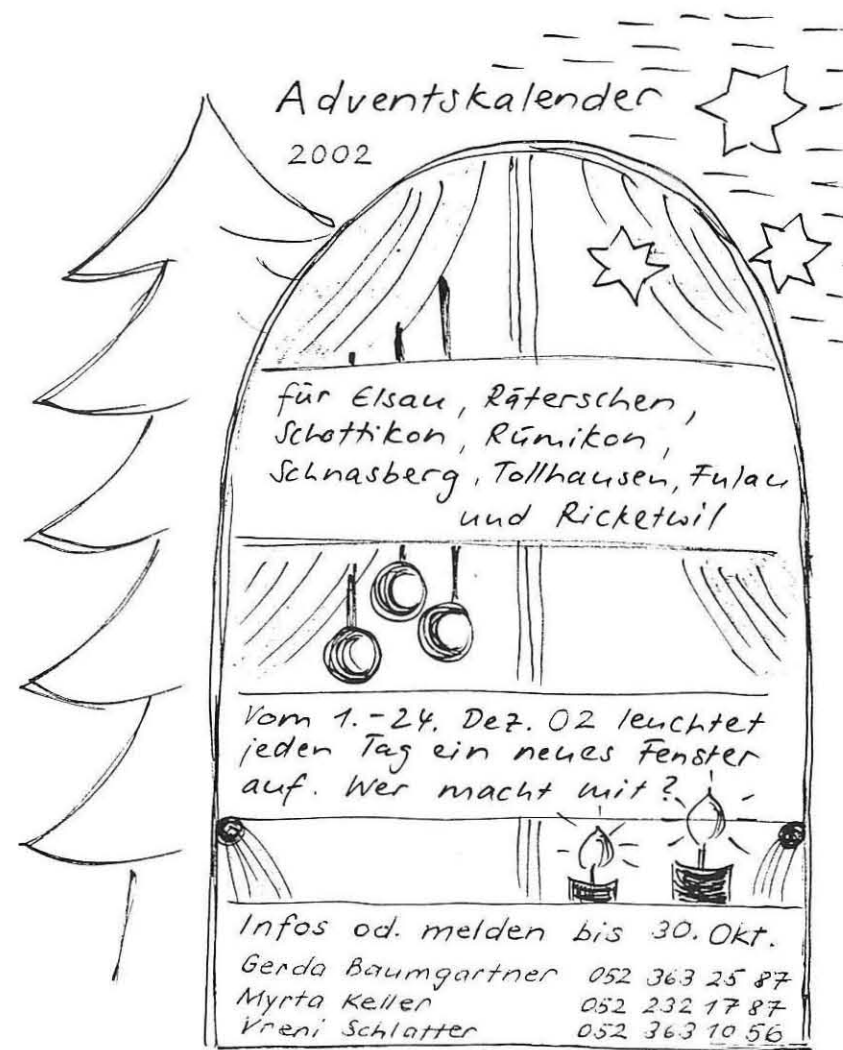 Adventskalender
2002
für Elsau, Räterschen,
Schottikon, Rümikon,
Schnasberg, Tollhausen, Fulau
und Ricketwil
Vom 1.-24. Dez. 02 leuchtet
jeden Tag ein neues Fenster
auf. Wer macht mit?
Infos od. melden bis 30. Okt.
Gerda Baumgartner 052 363 25 87
Myrta Keller 052 232 17 87
Vreni Schlatter 052 363 10 56